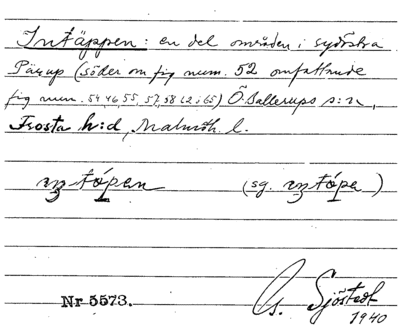 Intäppen: en del områden i sydöstra
Pärup (söder om fig num. 52 omfattande
fig num. 54 46 55, 57, 58 62 i 65) Ö. Sallerups s:n,
Frosta h:d, Malmöh. l.
(sg.
Nr 5573.
G. Sjöstedt
1940